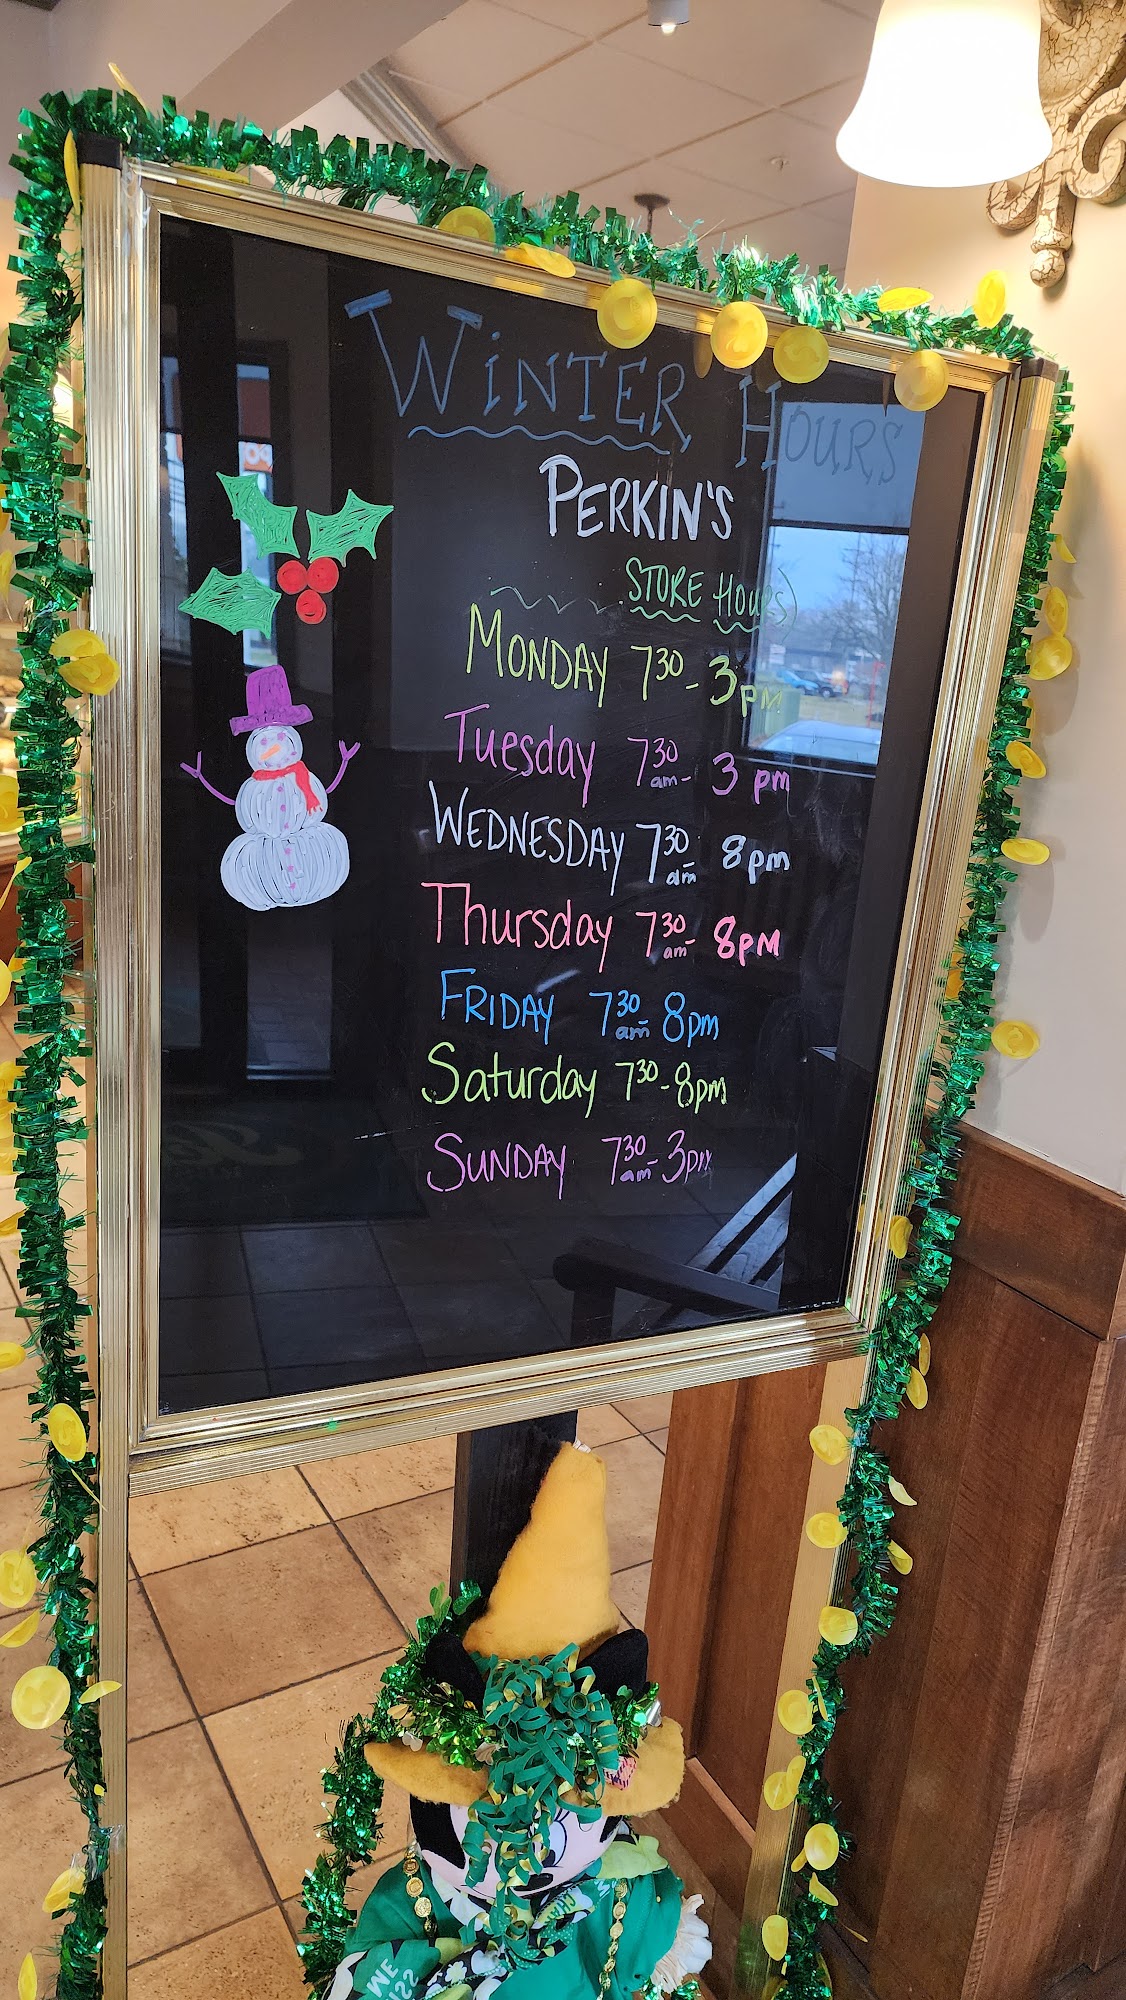 WINTER HOURS
PERKIN'S
STORE HOURS)
MONDAY 7³⁰ - 3pm
Tuesday 7³⁰ am - 3 pm
WEDNESDAY 7³⁰ am - 8pm
Thursday 7³⁰ am - 8pm
FRIDAY 7³⁰ am - 8pm
Saturday 7³⁰ - 8pm
SUNDAY 7³⁰ am - 3pm